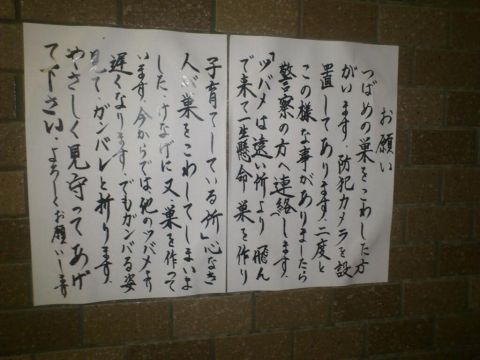 お願い
つばめの巣をこわした方
がいます。防犯カメラを設
置してあります。二度と
この様な事がありましたら
警察の方へ連絡します。
「ツバメは遠い所より飛ん
で来て一生懸命巣を作り
子育てしている所」心なき
人が巣をこわしてしまいよ
した。けなげに又巣を作って
います。今からでは他のツバメより
遅くなります。でもガンバる姿
見てガンバレと祈ります。
やさしく見守ってあげ
て下さい。よろしくお願いします